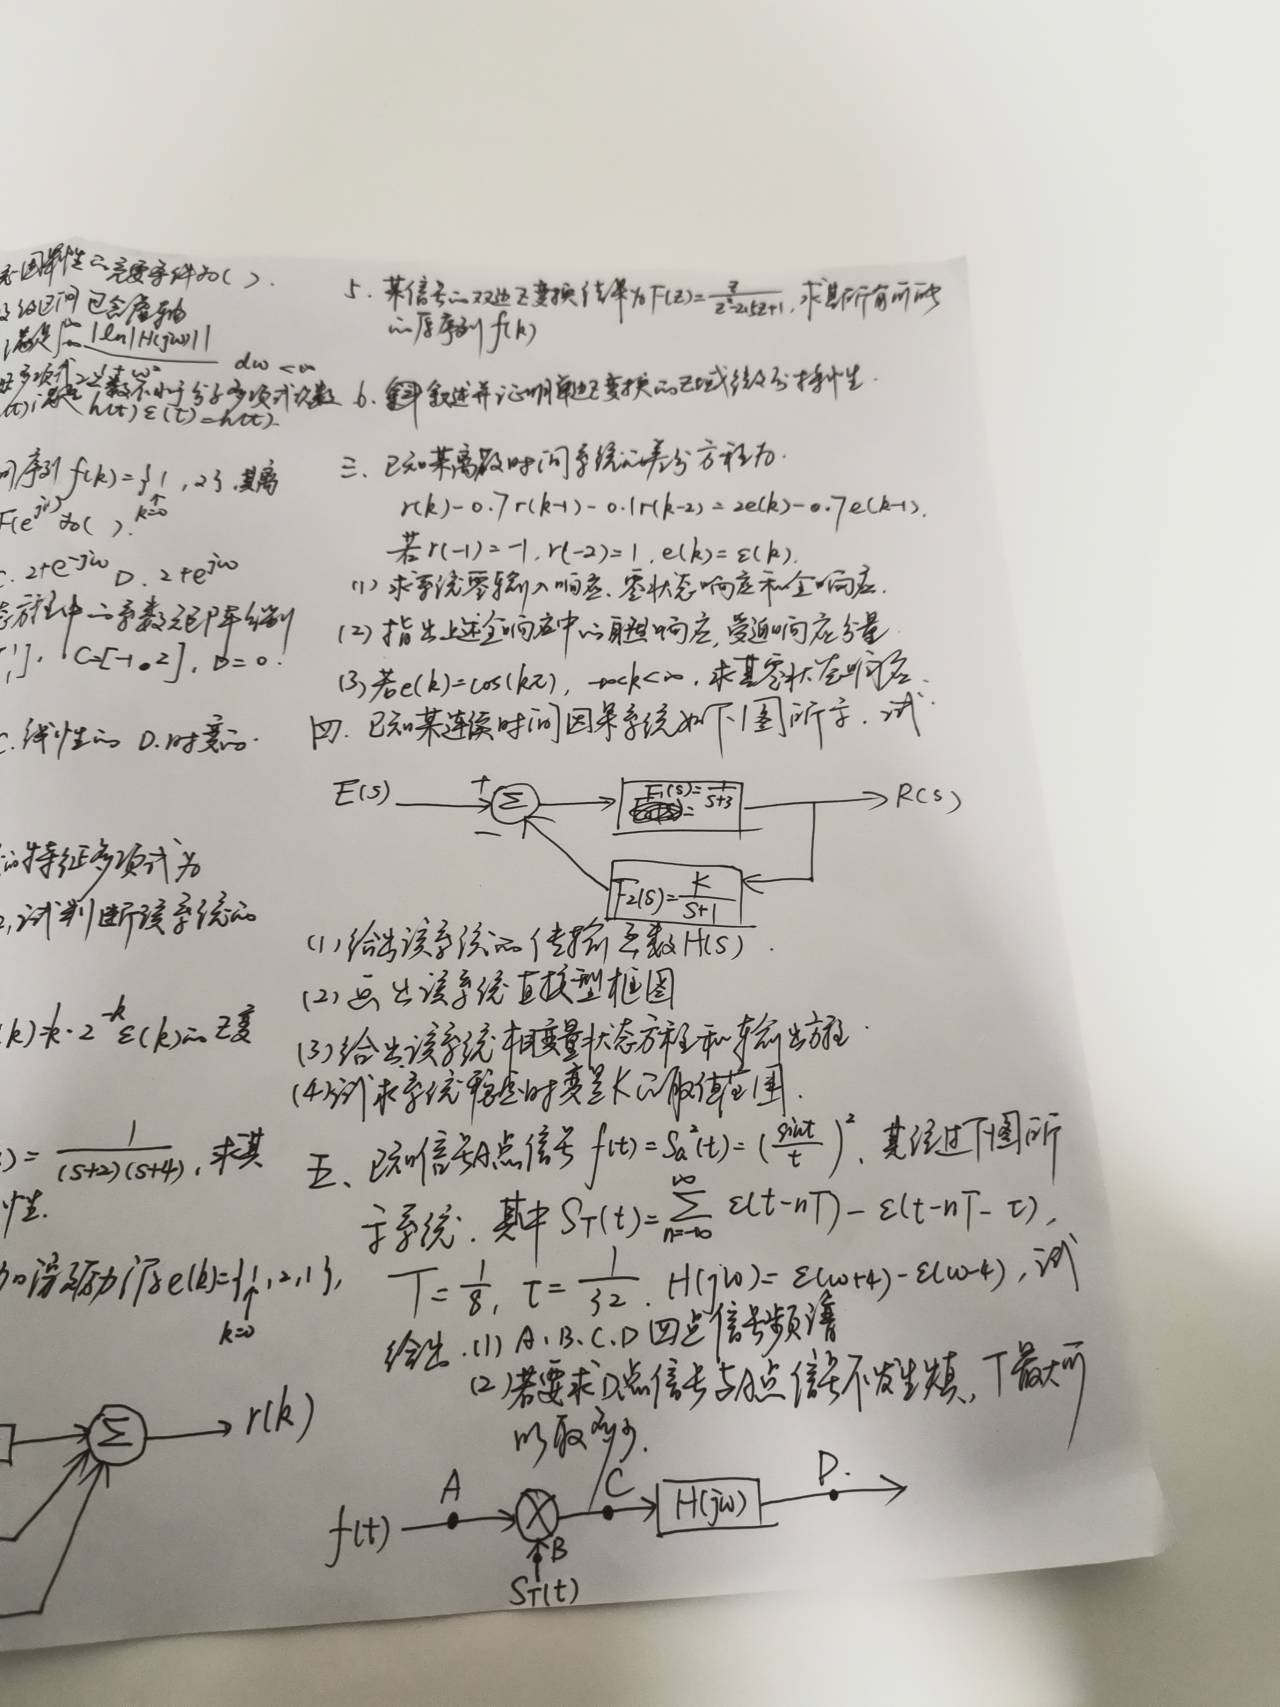 充要条件为( ).
包含虚轴
满足 |ln|H(jω)|| dω<∞
1+ω²
多项式次数不小于分子多项式次数
h(t)满足 h(t)ε(t)=h(t)
序列 f(k)={1,2}.其离
↑
k=0
F(e^jω)为( ).
C. 2+e^-jω D. 2+e^jω
态方程中的系数矩阵分别
C=[-1 0 2], D=0.
C.线性的 D.时变的.
的特征多项式为
试判断该系统的
(k)=k·2^-k ε(k)的Z变
= 1/((s+2)(s+4)), 求其
性.
加深励序e(k)={1,2,1},
↑
k=0
Σ r(k)
5. 某信号的双边Z变换结果为F(z)=z/(z²-2.5z+1),求其所有可能
的原序列f(k)
6. 叙述并证明单边Z变换的Z域微分特性.
三、已知某离散时间系统的差分方程为.
r(k)-0.7r(k-1)-0.1r(k-2)=2e(k)-0.7e(k-1).
若r(-1)=-1, r(-2)=1, e(k)=ε(k).
(1)求系统零输入响应、零状态响应和全响应.
(2)指出上述全响应中的自然响应,受迫响应分量
(3)若e(k)=cos(kπ), -∞<k<∞, 求其零状态响应.
四. 已知某连续时间因果系统如下图所示,试
E(s) + Σ F₁(s)=1/(s+3) R(s)
−
F₂(s)=K/(s+1)
(1)给出该系统的传输函数H(s).
(2)画出该系统直接型框图
(3)给出该系统相变量状态方程和输出方程.
(4)试求系统稳定时变量K的取值范围.
五、已知信号A点信号 f(t)=Sa²(t)=(sint/t)², 其经过下图所
示系统.其中 S_T(t)=Σ_{n=-∞}^{∞} ε(t-nT)-ε(t-nT-τ),
T=1/8, τ=1/32. H(jω)=ε(ω+4)-ε(ω-4),试
给出.(1) A、B、C、D四点信号频谱
(2)若要求D点信号与A点信号不发生失真,T最大可
以取多少.
f(t) A × C H(jω) D.
B
S_T(t)